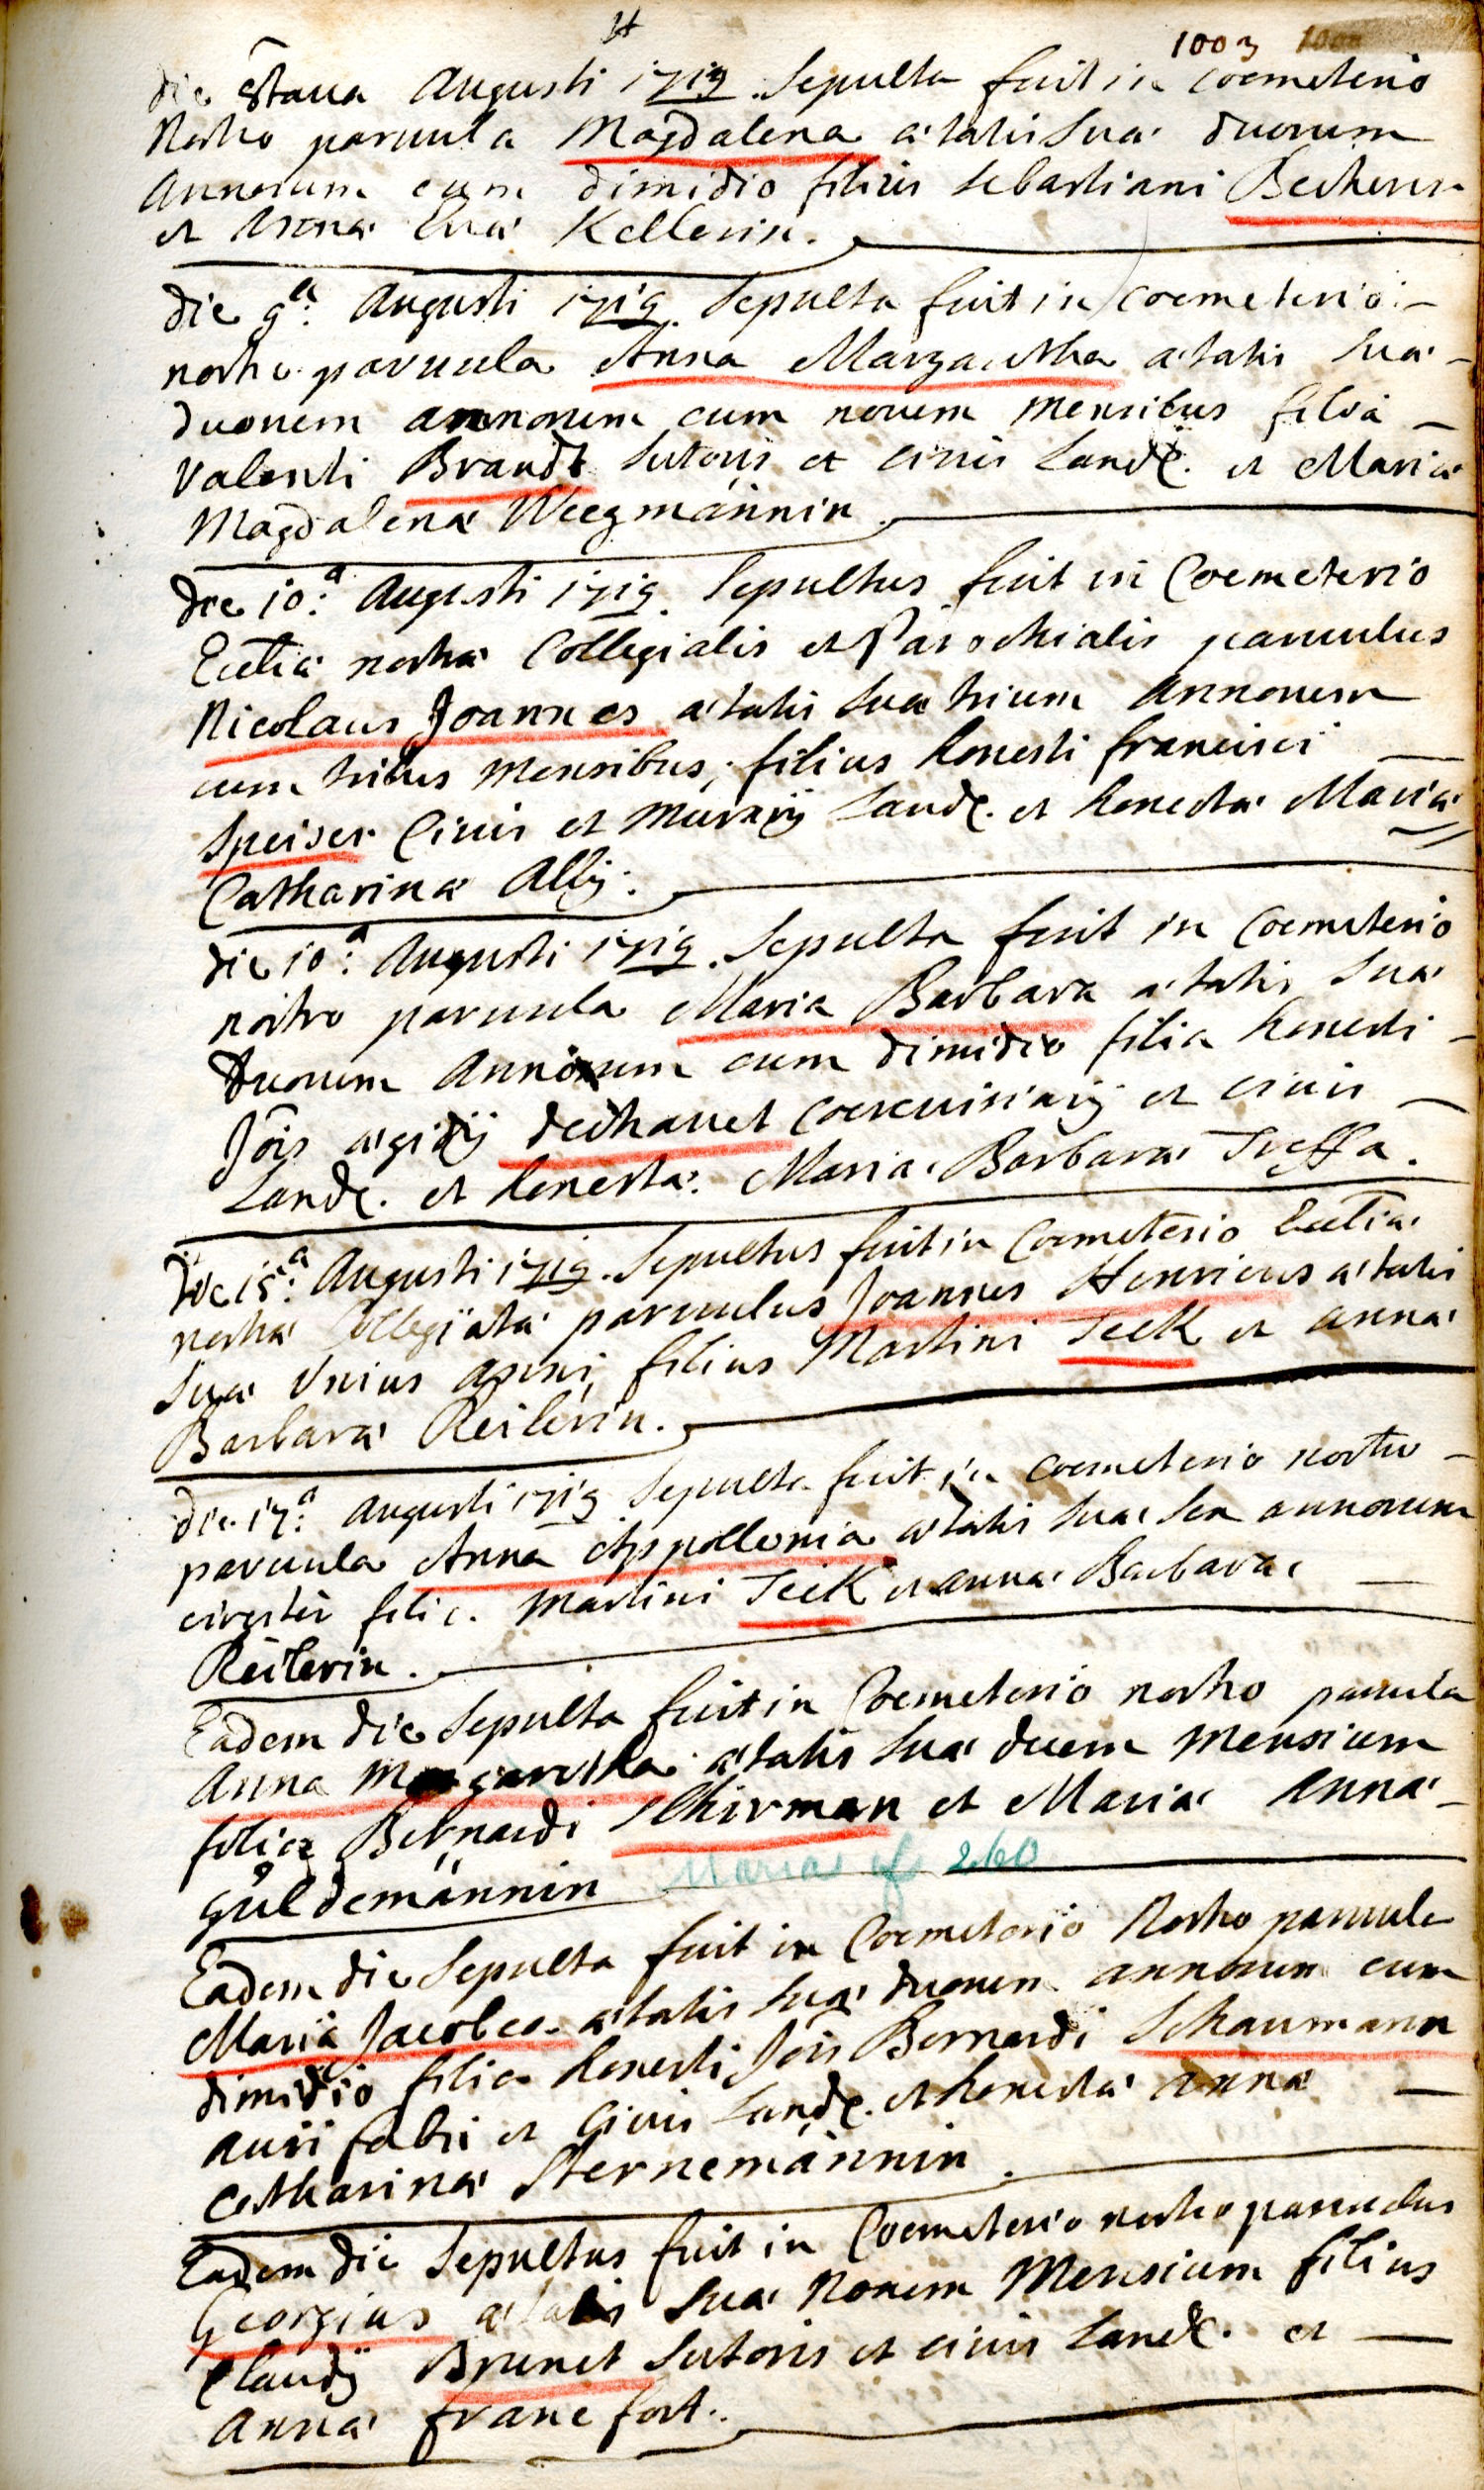 H
1003
die 8taua Augusti 1719. Sepulta fuit in coemeterio
Nostro paruula Magdalena ætatis suæ duorum
Annorum cum dimidio filius Sebastiani Becherer
et Annæ Euæ Kellerin.
die 9a: Augusti 1719. Sepulta fuit in coemeterio:
nostro paruula Anna Margaretha ætatis suæ
duorum annorum cum nouem mensibus filia
Valenti Brandt Sutoris et ciuis Landę. et Mariæ
Magdalenæ Weegmännin.
die 10:a Augusti 1719. Sepultus fuit in Coemeterio
Ecclîæ nostræ Collegialis et Parochialis paruulus
Nicolaus Joannes ætatis suæ trium Annorum
cum tribus mensibus, filius honesti francisci
Speiser Ciuis et Murarij Landę. et honestæ Mariæ
Catharinæ Allij:
die 10:a Augusti 1719. Sepulta fuit in Coemeterio
nostro paruula Maria Barbara ætatis suæ
duorum Annorum cum dimidio filia honesti
Jôis ægidij dechauet Cereuisiarij et ciuis
Landę. et honestæ. Mariæ Barbaræ Treffa.
die 15:a Augusti 1719. Sepultus fuit in Coemeterio Ecclîæ
nostræ Collegiatæ paruulus Joannes Henricus ætatis
suæ Vnius Anni, filius Martini Teck et Annæ
Barbaræ Reilerin.
die 17:a Augusti 1719 Sepulta fuit in coemeterio nostro
paruula Anna Appollonia ætatis suæ sex annorum
circiter filia. Martini Teck et annæ Barbaræ
Reilerin.
Eadem die Sepulta fuit in Coemeterio nostro paruula
Anna Margaretha ætatis suæ duum Mensium
filia Bernardi Schirman et Mariæ Annæ
güldemännin Maria cf 260
Eadem die Sepulta fuit in Coemeterio Nostro paruula
Maria Jacobea ætatis suæ duorum annorum cum
dimidio filia honesti Jôis Bernardi Schaumann
auri fabri et Ciuis Landę. et honestæ Annæ
Catharinæ Sternemännin.
Eadem die Sepultus fuit in Coemeterio nostro paruulus
Georgius ætatis suæ Nouem Mensium filius
Claudij Brunet Sutoris et ciuis Landę. et
Annæ francfort.